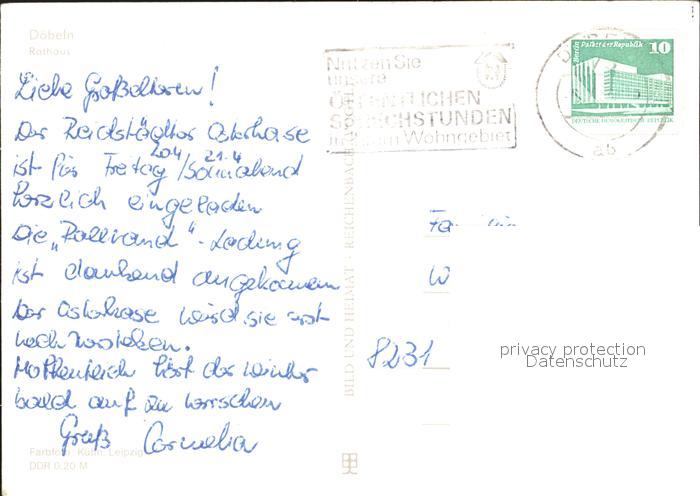 Döbeln
Rathaus
Liebe Großeltern!
Der Reichstädter Osterhase
ist für Freitag 20.4/Sonnabend 21.4
herzlich eingeladen
Die " "-Ladung
ist dankend angekommen
Der Osterhase wird sie erst
noch verstecken.
Hoffentlich hört der Winter
bald auf zu herrschen
Gruß Cornelia
Farbfoto: Kühn, Leipzig
DDR 0,20 M
BILD UND HEIMAT · REICHENBACH
Nutzen Sie
unsere
ÖFFENTLICHEN
SPRECHSTUNDEN
Wohngebiet
ab
Berlin Palast der Republik 10
DEUTSCHE DEMOKRATISCHE REPUBLIK
Fa
W
8231
privacy protection
Datenschutz